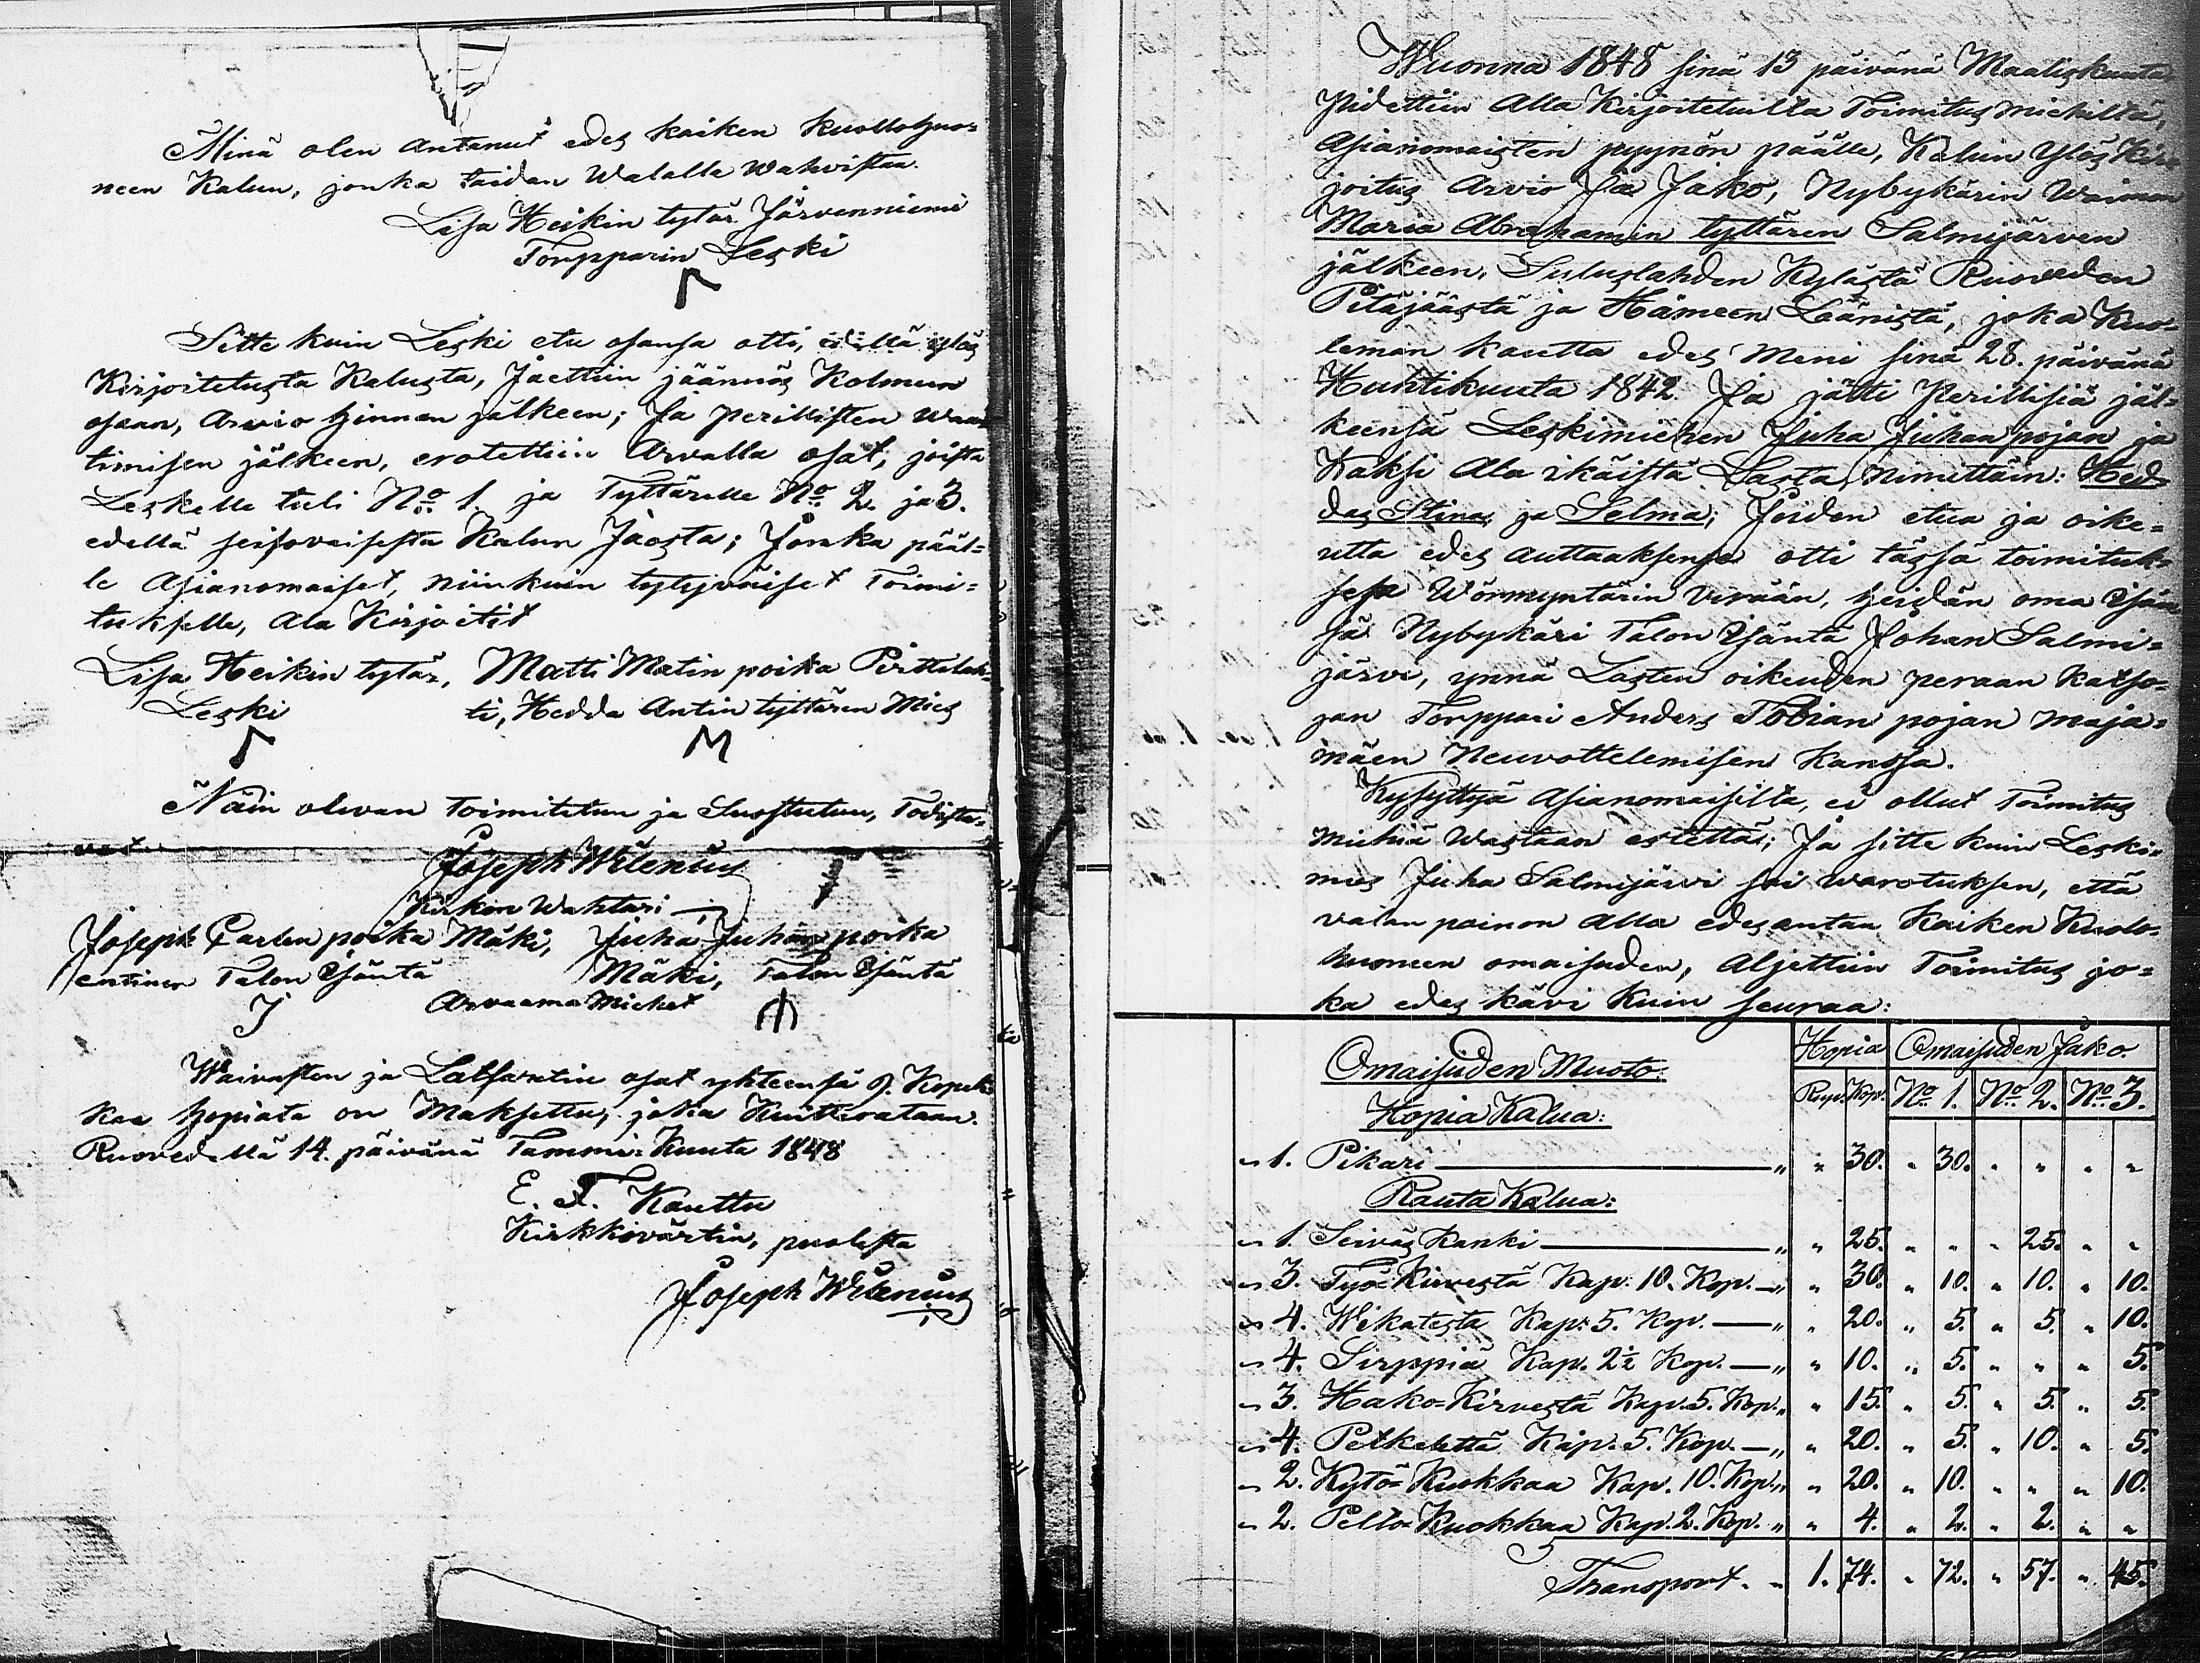 Minä olen antanut edes kaiken kuollohuo=
neen Kalun, jonka taidan Walalla Wahvistaa.
Lisa Heikin tytär Järvenniemi
Torpparin Leski
Sitte kuin Leski etu osansa otti, edellä ylös
Kirjoitetusta Kalusta, Jaettiin jäännös Kolmeen
osaan, Arvio hinnan jälkeen; Ja perillisten Waa
timisen jälkeen, erotettiin Arvalla osat, joista
Leskelle tuli No. 1. ja Tyttärelle No. 2. ja 3.
edellä seisovaisesta Kalun Jaosta; Jonka pääl=
le Asianomaiset, niinkuin tytyväiset Toimi=
tukselle, Ala Kirjoitit
Lisa Heikin tytär, Matti Matin poika Pirttilah=
Leski ti, Hedda Antin tyttären Mies
Näin olevan toimitetun ja Suostutun, Todista=
vat
Joseph Wilenius
Kirkon Wahtari
Joseph Carlen poika Mäki, Juha Juhan poika
entinen Talon Isäntä Mäki, Talon Isäntä
Arvaama Miehet
Waivasten ja Latsaretin osat yhteensä 9. Kopek
kaa hopiata on Maksettu, joka Kuitterataan.
Ruovedellä 14. päivänä Tammi-Kuuta 1848
E. F. Kauttu
Kirkkovärtin, puolesta
Joseph Wilenius
Wuonna 1848 sinä 13 päivänä Maaliskuuta
Pidettiin Alla Kirjoitetuilta Toimitus miehiltä,
Asianomaisten pyynön päälle, Kalun Ylös Kir
joitus Arvio Ja Jako, Nybykärin Waimon
Maria Abrahamin tyttären Salmijärven
jälkeen, Suluslahden Kylästä Ruoveden
Pitäjäästä ja Hämeen Läänistä, joka Kuo=
leman kautta edes meni sinä 28. päivänä
Huhtikuuta 1842. Ja jätti Perillisiä jäl=
keensä Leskimiehen Juha Juhan pojan ja
Kaksi Ala ikäistä Lasta, nimittäin: Hed=
das Stina, ja Selma; Joiden etua ja oike=
utta edes auttaaksensa otti tässä toimituk=
sessa Wörmyntärin Virään, heidän oma Isän
sä Nybykäri Talon Isäntä Johan Salmi=
järvi, ynnä Lasten oikeuden peraan Katso=
jan Torppari Anders Tobian pojan Maja=
mäen Neuvottelemisen Kanssa.
Kysyttyä Asianomaisilta, ei ollut Toimitus
miehiä Wastaan estettä; Ja sitte kuin Leski=
mies Juha Salmijärvi sai Warotuksen, että
valan painon alla edesantaa Kaiken Kuolo=
huoneen omaisuden, Aljettiin Toimitus jo=
ka edes kävi Kuin seuraa:
Omaisuden Muoto. Hopia Omaisuden Jako.
Hopia Kalua: Rup. Kop. No. 1. No. 2. No. 3.
" 1. Pikari — " " 30. " 30. " " " "
Rauta Kalua:
" 1. Seiväs Kanki — " " 25. " " " 25. " "
" 3. Työ-Kirvestä Kap. 10. Kop. — " " 30. " 10. " 10. " 10.
" 4. Wikatesta Kap. 5. Kop. — " " 20. " 5. " 5. " 10.
" 4. Sirppiä Kap. 2½ Kop. — " " 10. " 5. " " " 5.
" 3. Hako-Kirvestä Kap. 5. Kop. " " 15. " 5. " 5. " 5.
" 4. Petkelettä Kap. 5. Kop. — " " 20. " 5. " 10. " 5.
" 2. Kytö-Kuokkaa Kap. 10. Kop. " " 20. " 10. " " " 10.
" 2. Pelto-Kuokkaa Kap. 2. Kop. " " 4. " 2. " 2. " "
Transport. " 1. 74. " 72. " 57. " 45.